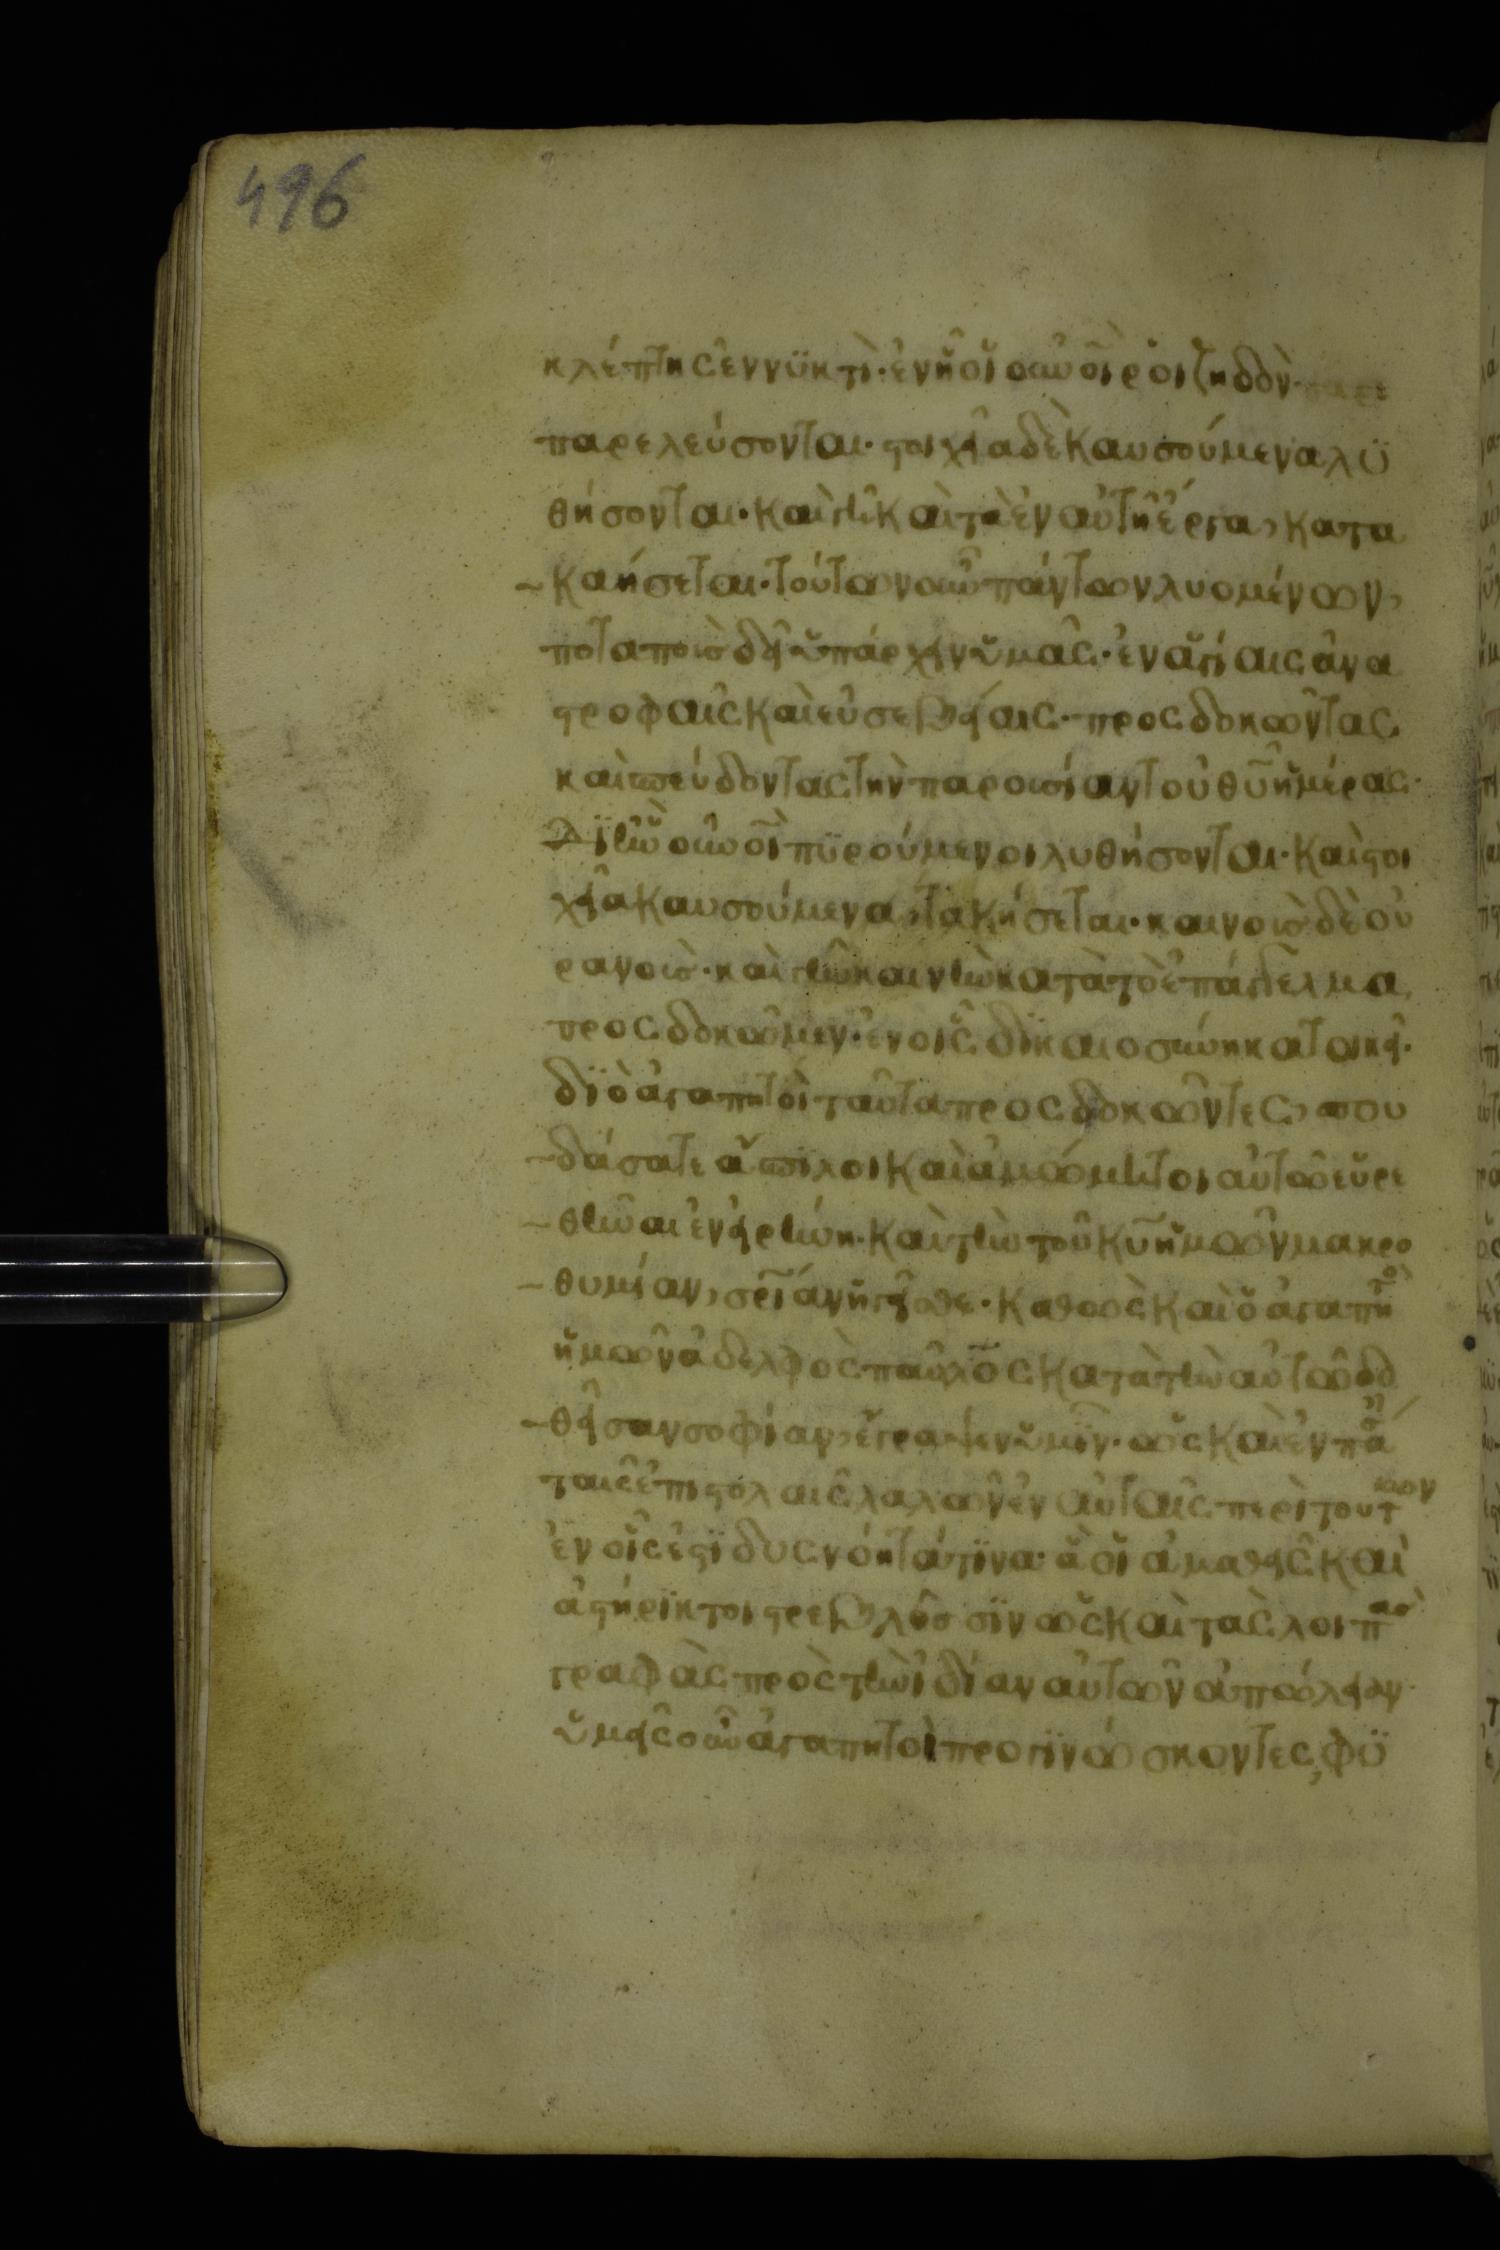 496
κλέπτης ἐν νϋκτὶ· ἐν ἧ οἱ οὐνοὶ ῥοιζηδὸν·
παρελεύσονται· στοιχεῖα δὲ καυσούμενα λϋ
θήσονται· καὶ γῆ καὶ τὰ ἐν αὐτῆ ἔργα, κατα
καήσεται· τούτων οὖν πάντων λυομένων,
ποταποὺς δεῖ ὑπάρχειν ὑμᾶς· ἐν ἁγίαις ἀνα
στροφαῖς καὶ εὐσεβείαις· προσδοκῶντας
καὶ σπεύδοντας τὴν παρουσίαν τοῦ θυ ἡμέρας·
δϊ ἣν οὐνοὶ πϋρούμενοι λυθήσονται· καὶ στοι
χεῖα καυσούμενα, τακήσεται· καινοὺς δὲ οὐ
ρανοὺς· καὶ γῆν καινὴν κατὰ τὸ ἐπάγγελμα
προσδοκῶμεν· ἐν οἷς δϊκαιοσύνη κατοικεῖ·
δϊὸ ἀγαπητοὶ ταῦτα προσδοκῶντες, σπου
δάσατε ἄσπιλοι καὶ ἀμώμητοι αὐτῶ εὑρε
θῆναι ἐν εἰρήνη· καὶ τὴν τοῦ κυ ἡμῶν μακρο
θυμίαν, σρίαν ἡγεῖσθε· καθὼς καὶ ὁ ἀγαπητὸ
ἡμῶν ἀδελφὸς παῦλος κατὰ τὴν αὐτῶ δο
θεῖσαν σοφίαν, ἔγραψεν ὑμῖν· ὡς καὶ ἐν πάση
ταῖς ἐπιστολαῖς λαλῶν ἐν αὐταῖς περὶ τούτων
ἐν οἷς ἐστϊ δυσνόητά τϊνα· ἃ οἱ ἀμαθεῖς καὶ
ἀστήρϊκτοι στρεβλοῦσϊν ὡς καὶ τὰς λοιπὰς
γραφὰς πρὸς τὴν ἰδίαν αὐτῶν ἀπώλειαν
ὑμεῖς οὖν ἀγαπητοὶ προγϊνώσκοντες, φϋ